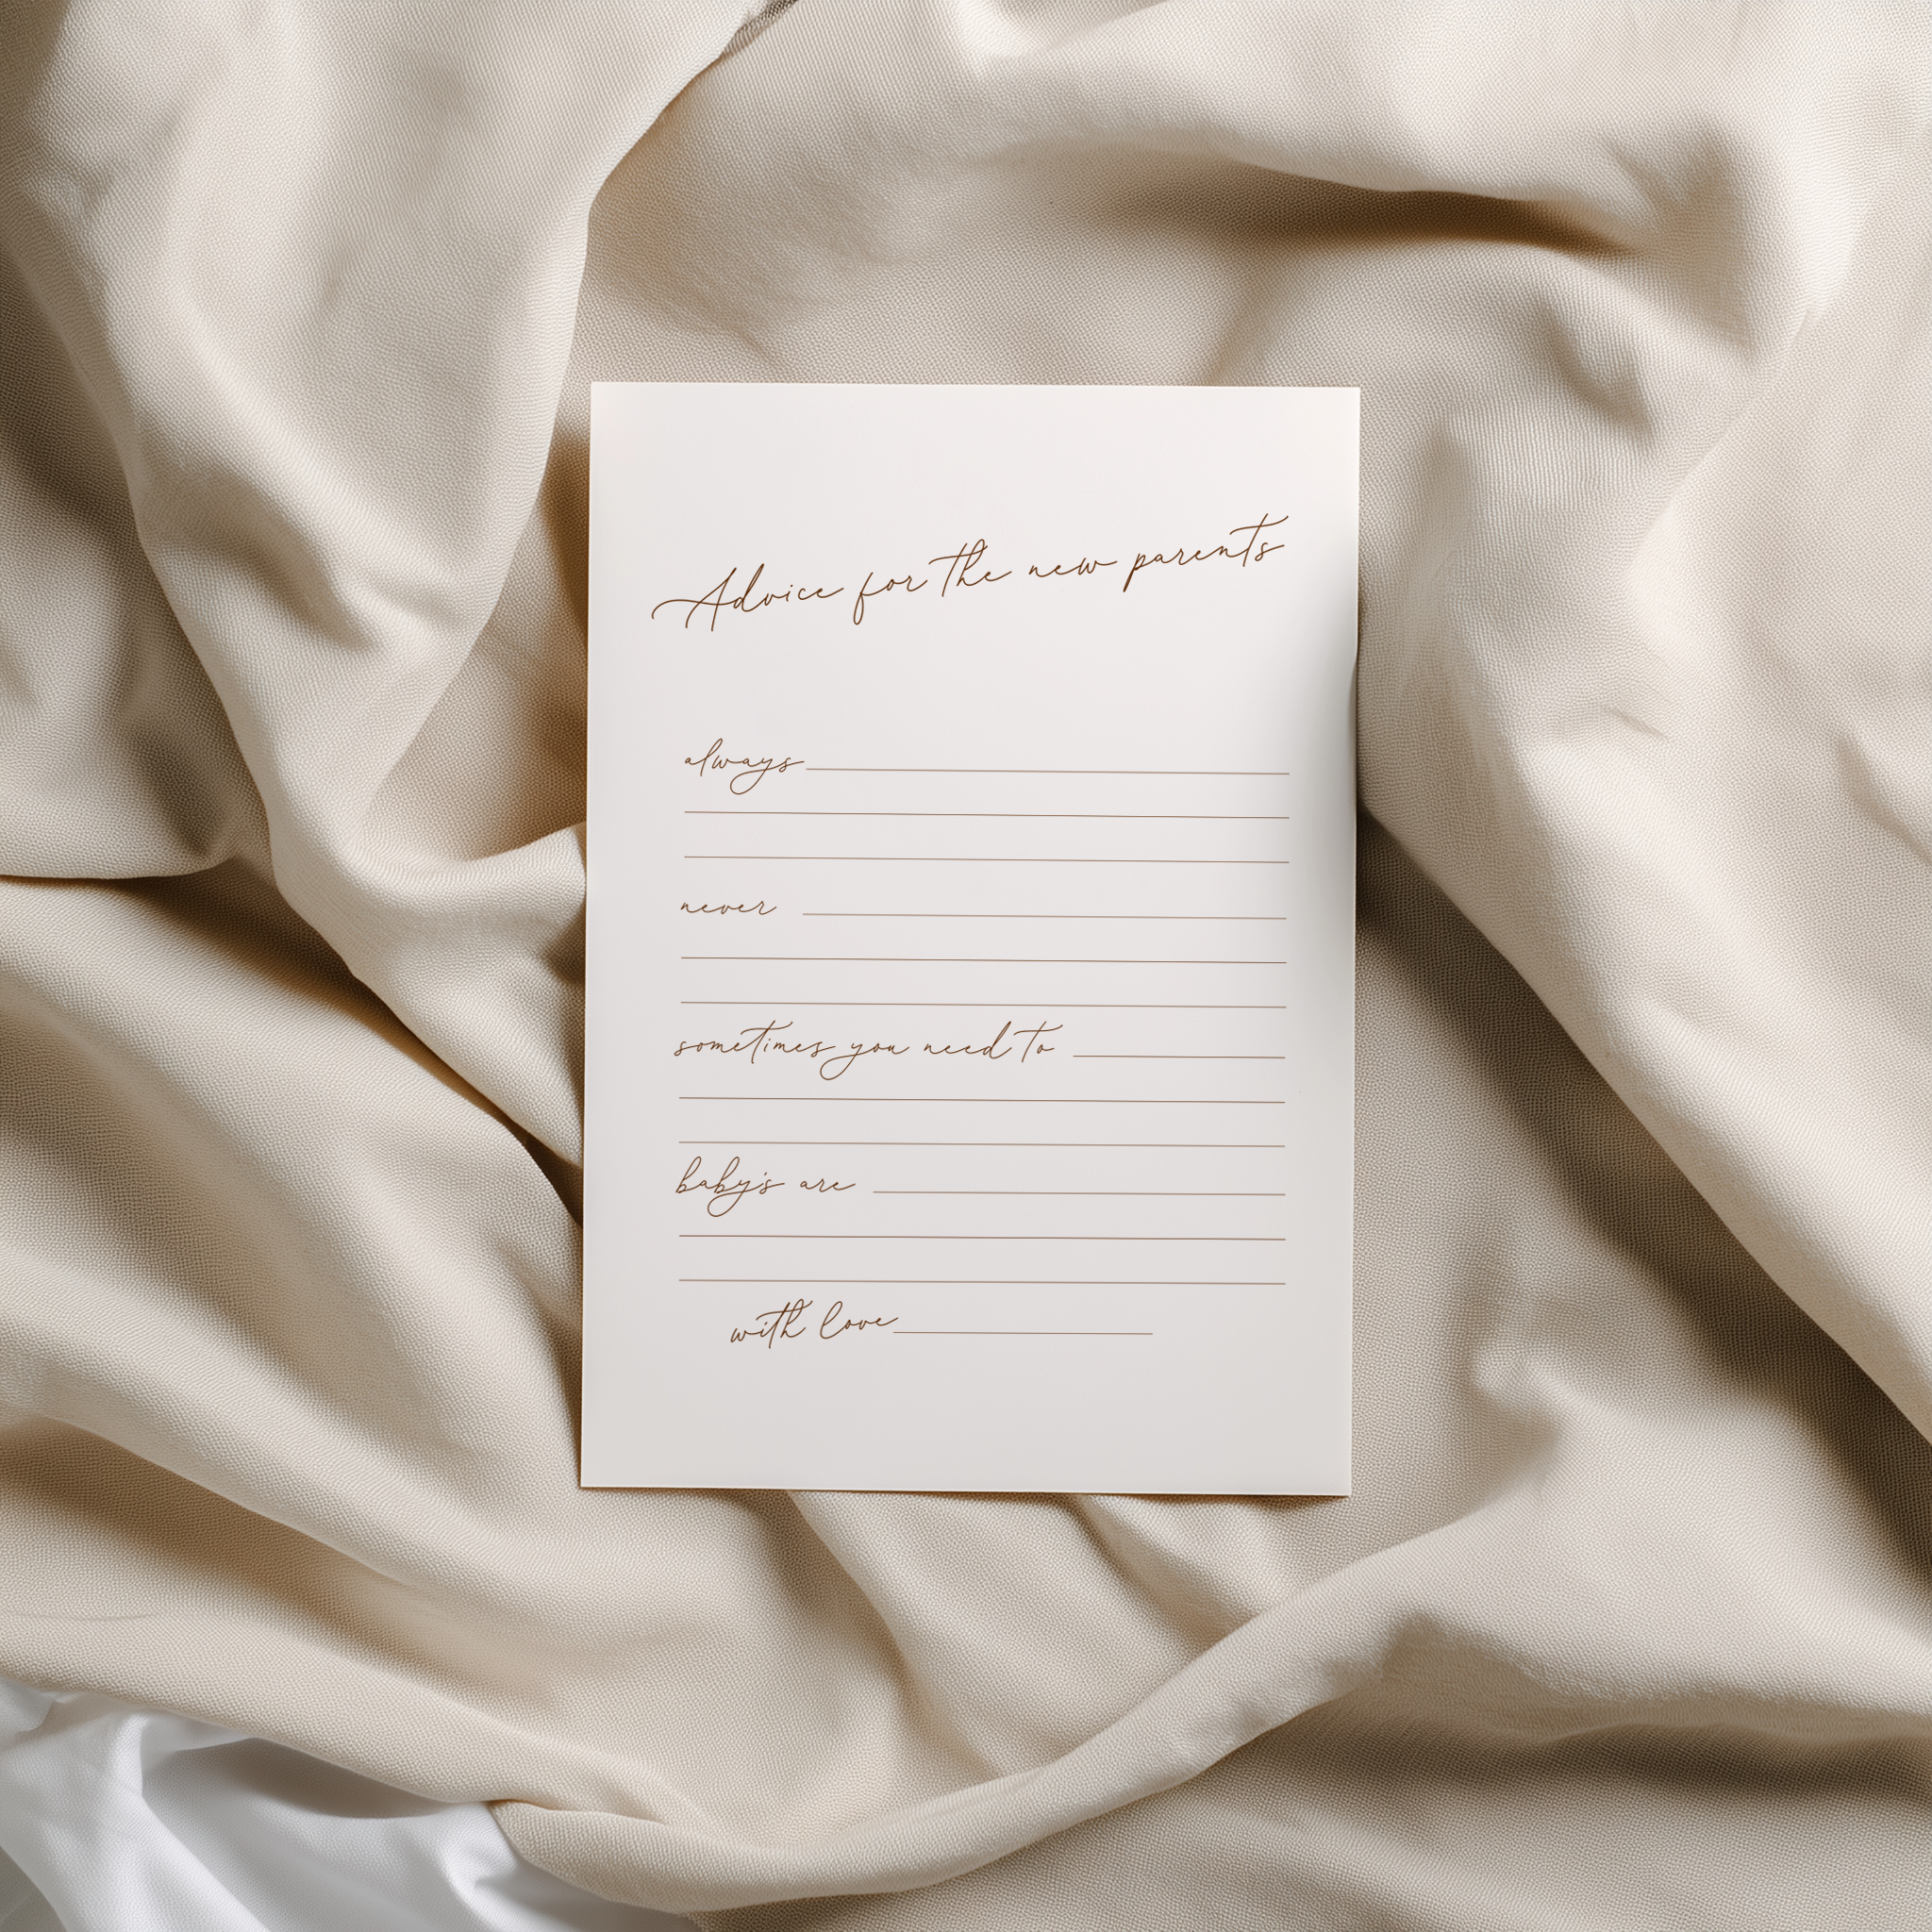 Advice for the new parents
always
never
sometimes you need to
baby's are
with love